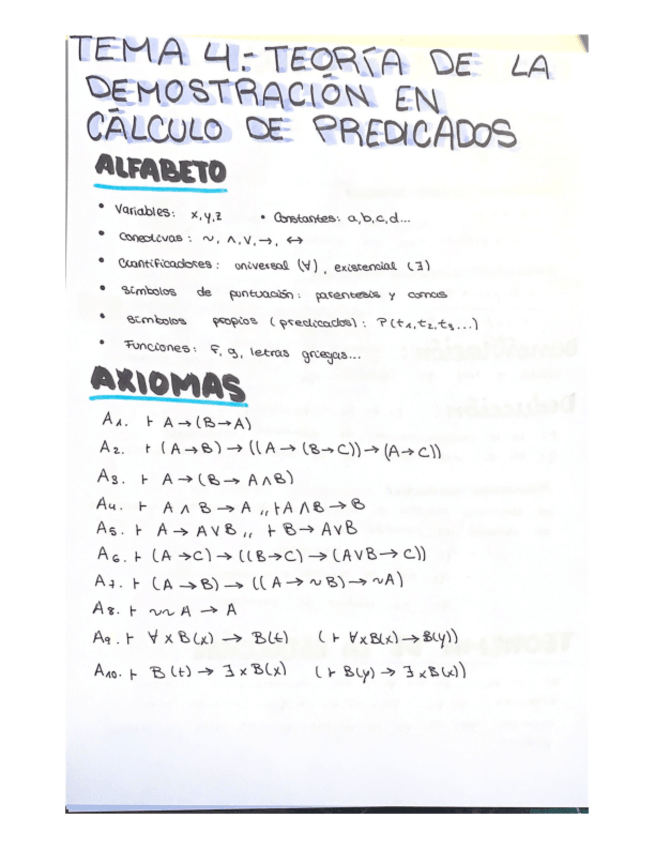 TEMA 4.- TEORÍA DE LA
DEMOSTRACIÓN EN
CÁLCULO DE PREDICADOS
ALFABETO
• Variables: x,y,z • Constantes: a,b,c,d...
• Conectivas: ~, ∧, ∨, →, ↔
• Cuantificadores: universal (∀), existencial (∃)
• Símbolos de puntuación: parentesis y comas
• Símbolos propios (predicados): P(t₁,t₂,t₃...)
• Funciones: f, g, letras griegas...
AXIOMAS
A₁. ⊢ A → (B → A)
A₂. ⊢ (A → B) → ((A → (B → C)) → (A → C))
A₃. ⊢ A → (B → A ∧ B)
A₄. ⊢ A ∧ B → A ,, ⊢ A ∧ B → B
A₅. ⊢ A → A ∨ B ,, ⊢ B → A ∨ B
A₆. ⊢ (A → C) → ((B → C) → (A ∨ B → C))
A₇. ⊢ (A → B) → ((A → ~B) → ~A)
A₈. ⊢ ~~A → A
A₉. ⊢ ∀x B(x) → B(t) (⊢ ∀x B(x) → B(y))
A₁₀. ⊢ B(t) → ∃x B(x) (⊢ B(y) → ∃x B(x))